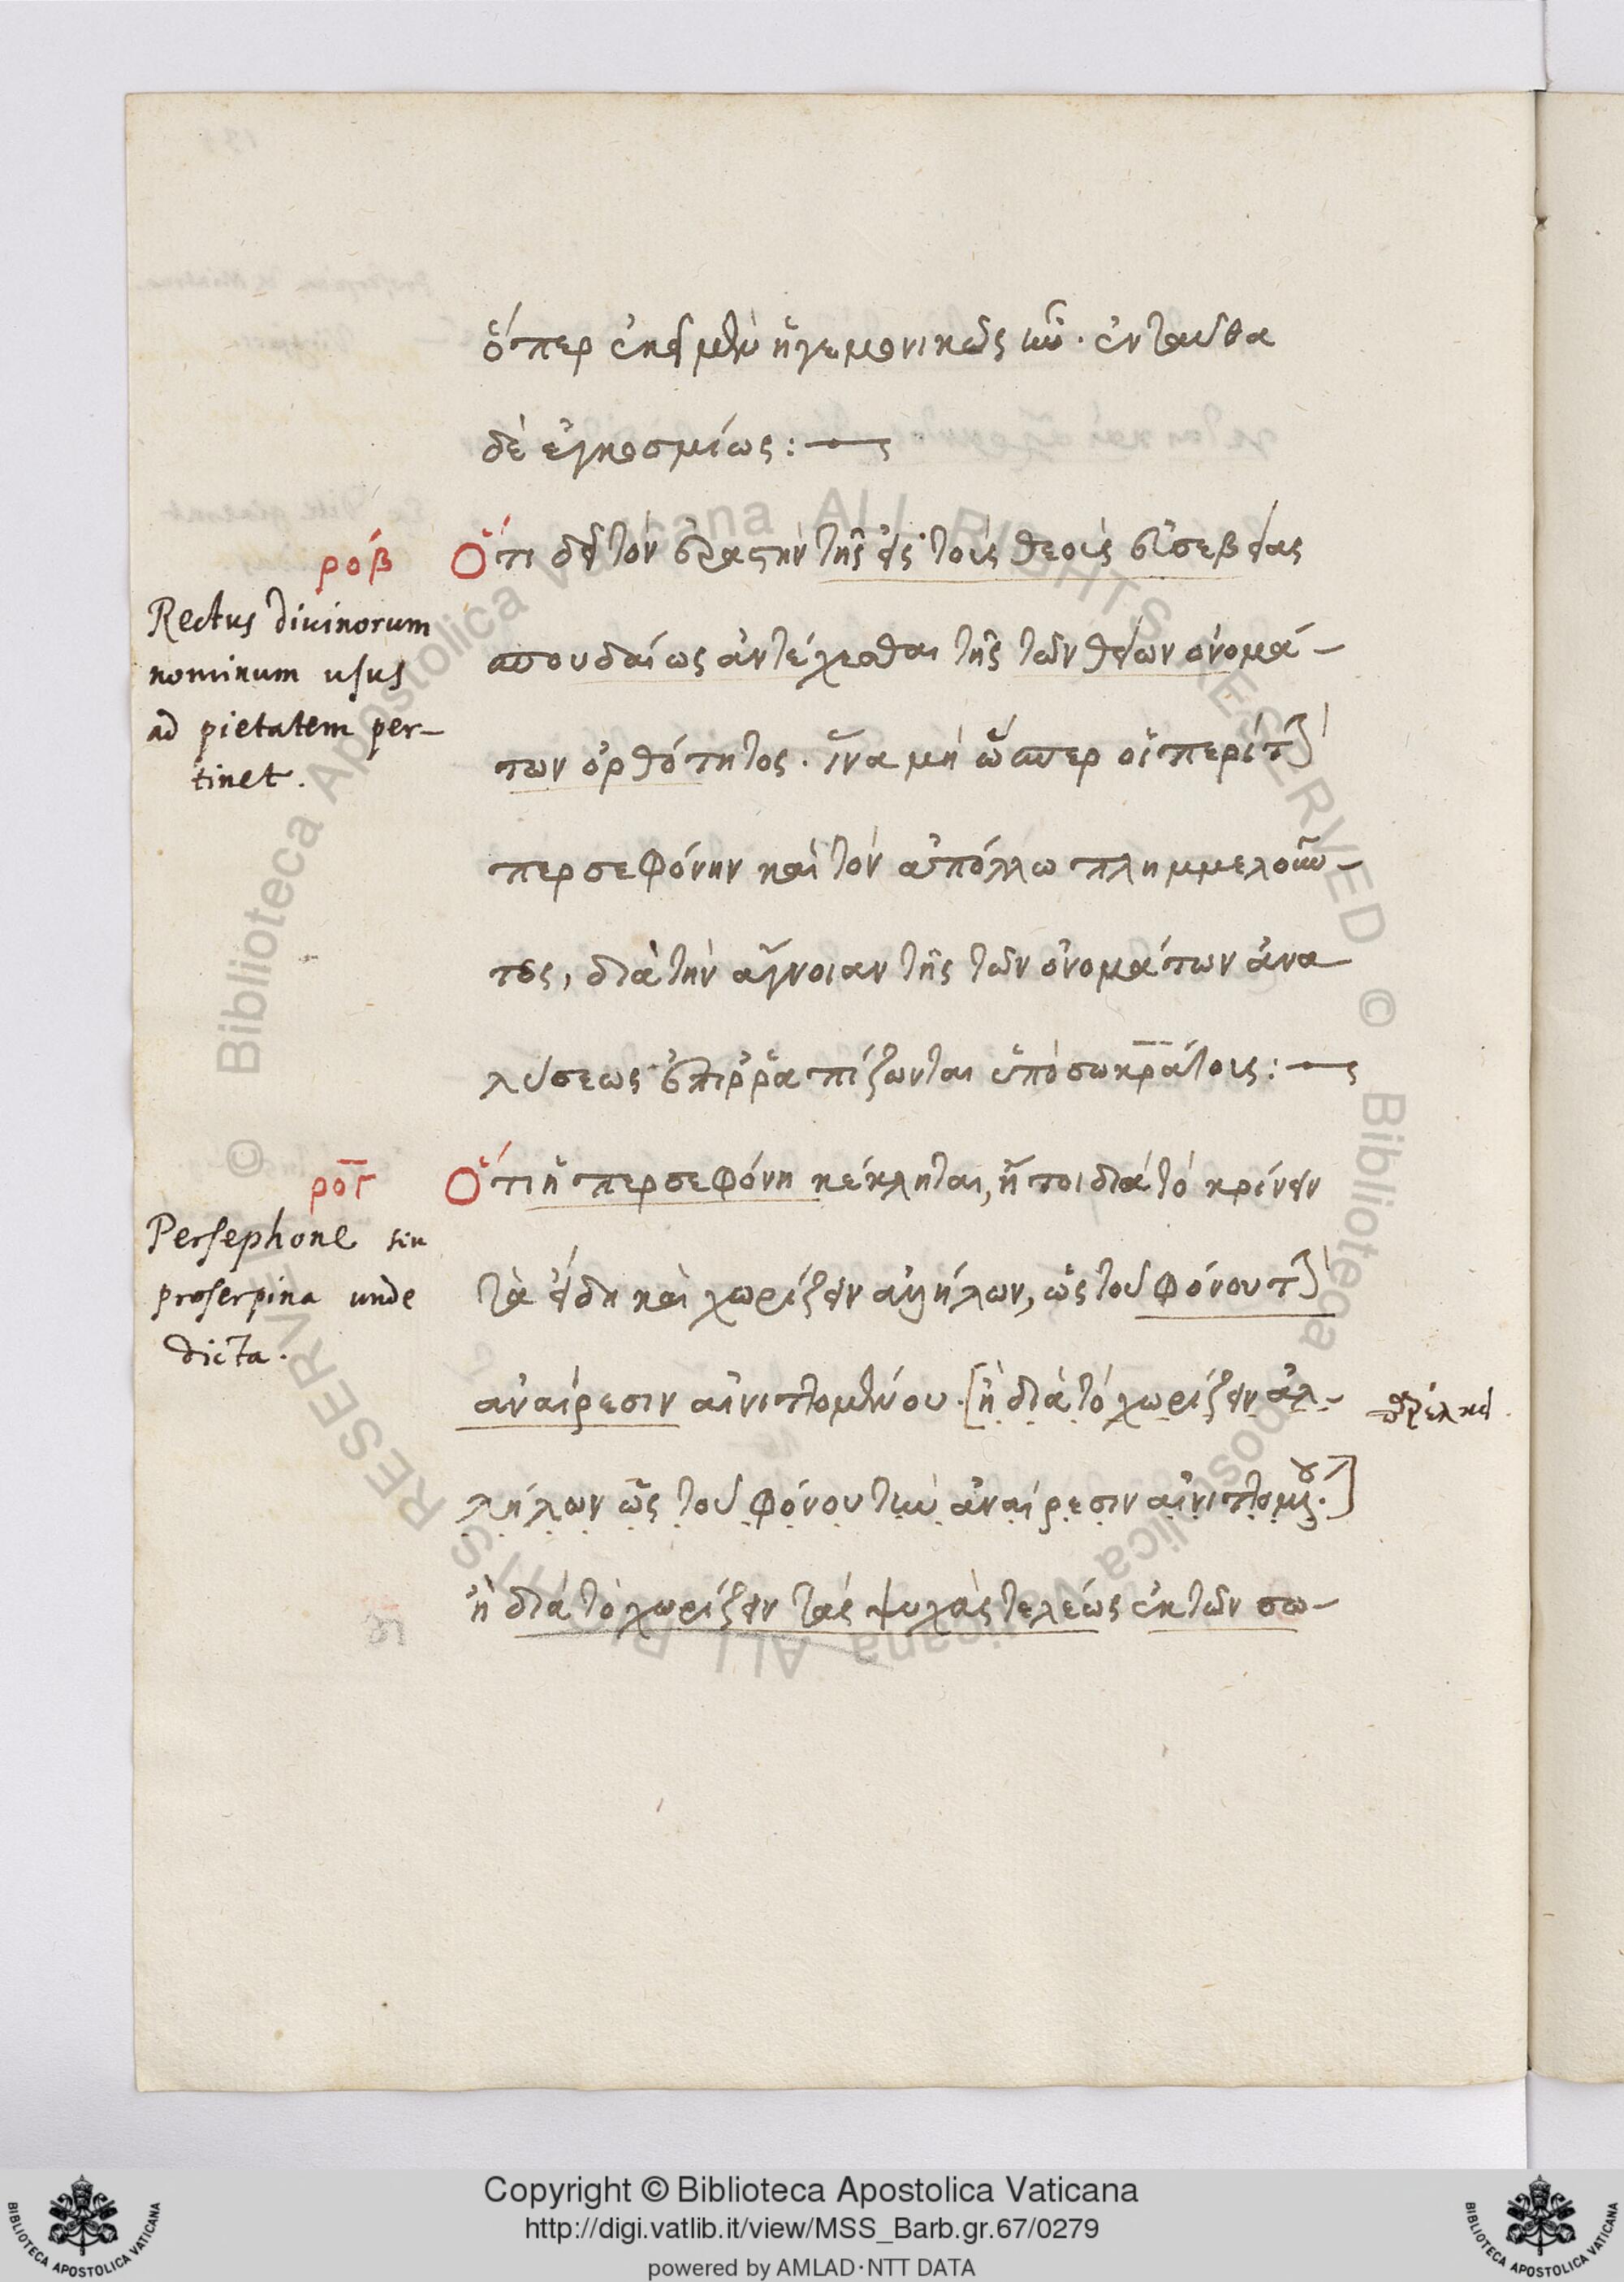 ὅπερ ἐκεῖ μὲν ἡγεμονικῶς ἦν. ἐνταῦθα
δὲ ἐγκοσμίως:
ροβ Ὅτι δεῖ τὸν ἐραστὴν τῆς εἰς τοὺς θεοὺς εὐσεβείας
Rectus diuinorum
nominum usus
ad pietatem per-
tinet.
σπουδαίως ἀντέχεσθαι τῆς τῶν θείων ὀνομά-
των ὀρθότητος. ἵνα μὴ ὥσπερ οἱ περὶ τὴν
περσεφόνην καὶ τὸν ἀπόλλω πλημμελοῦν-
τες, διὰ τὴν ἄγνοιαν τῆς τῶν ὀνομάτων ἀνα
λύσεως ἐπιρραπίζωνται ὑπὸ σωκράτους:
ρογ Ὅτι ἡ περσεφόνη κέκληται, ἤτοι διὰ τὸ κρίνειν
Persephone siu
proserpina unde
dicta.
τὰ εἴδη καὶ χωρίζειν ἀλλήλων, ὡς τοῦ φόνου τὴν
ἀναίρεσιν αἰνιττομένου. [ἢ διὰ τὸ χωρίζειν ἀλ-
λήλων ὡς τοῦ φόνου τὴν ἀναίρεσιν αἰνιττομένου.]
ἢ διὰ τὸ χωρίζειν τὰς ψυχὰς τελέως ἐκ τῶν σω-
Copyright © Biblioteca Apostolica Vaticana
http://digi.vatlib.it/view/MSS_Barb.gr.67/0279
powered by AMLAD·NTT DATA